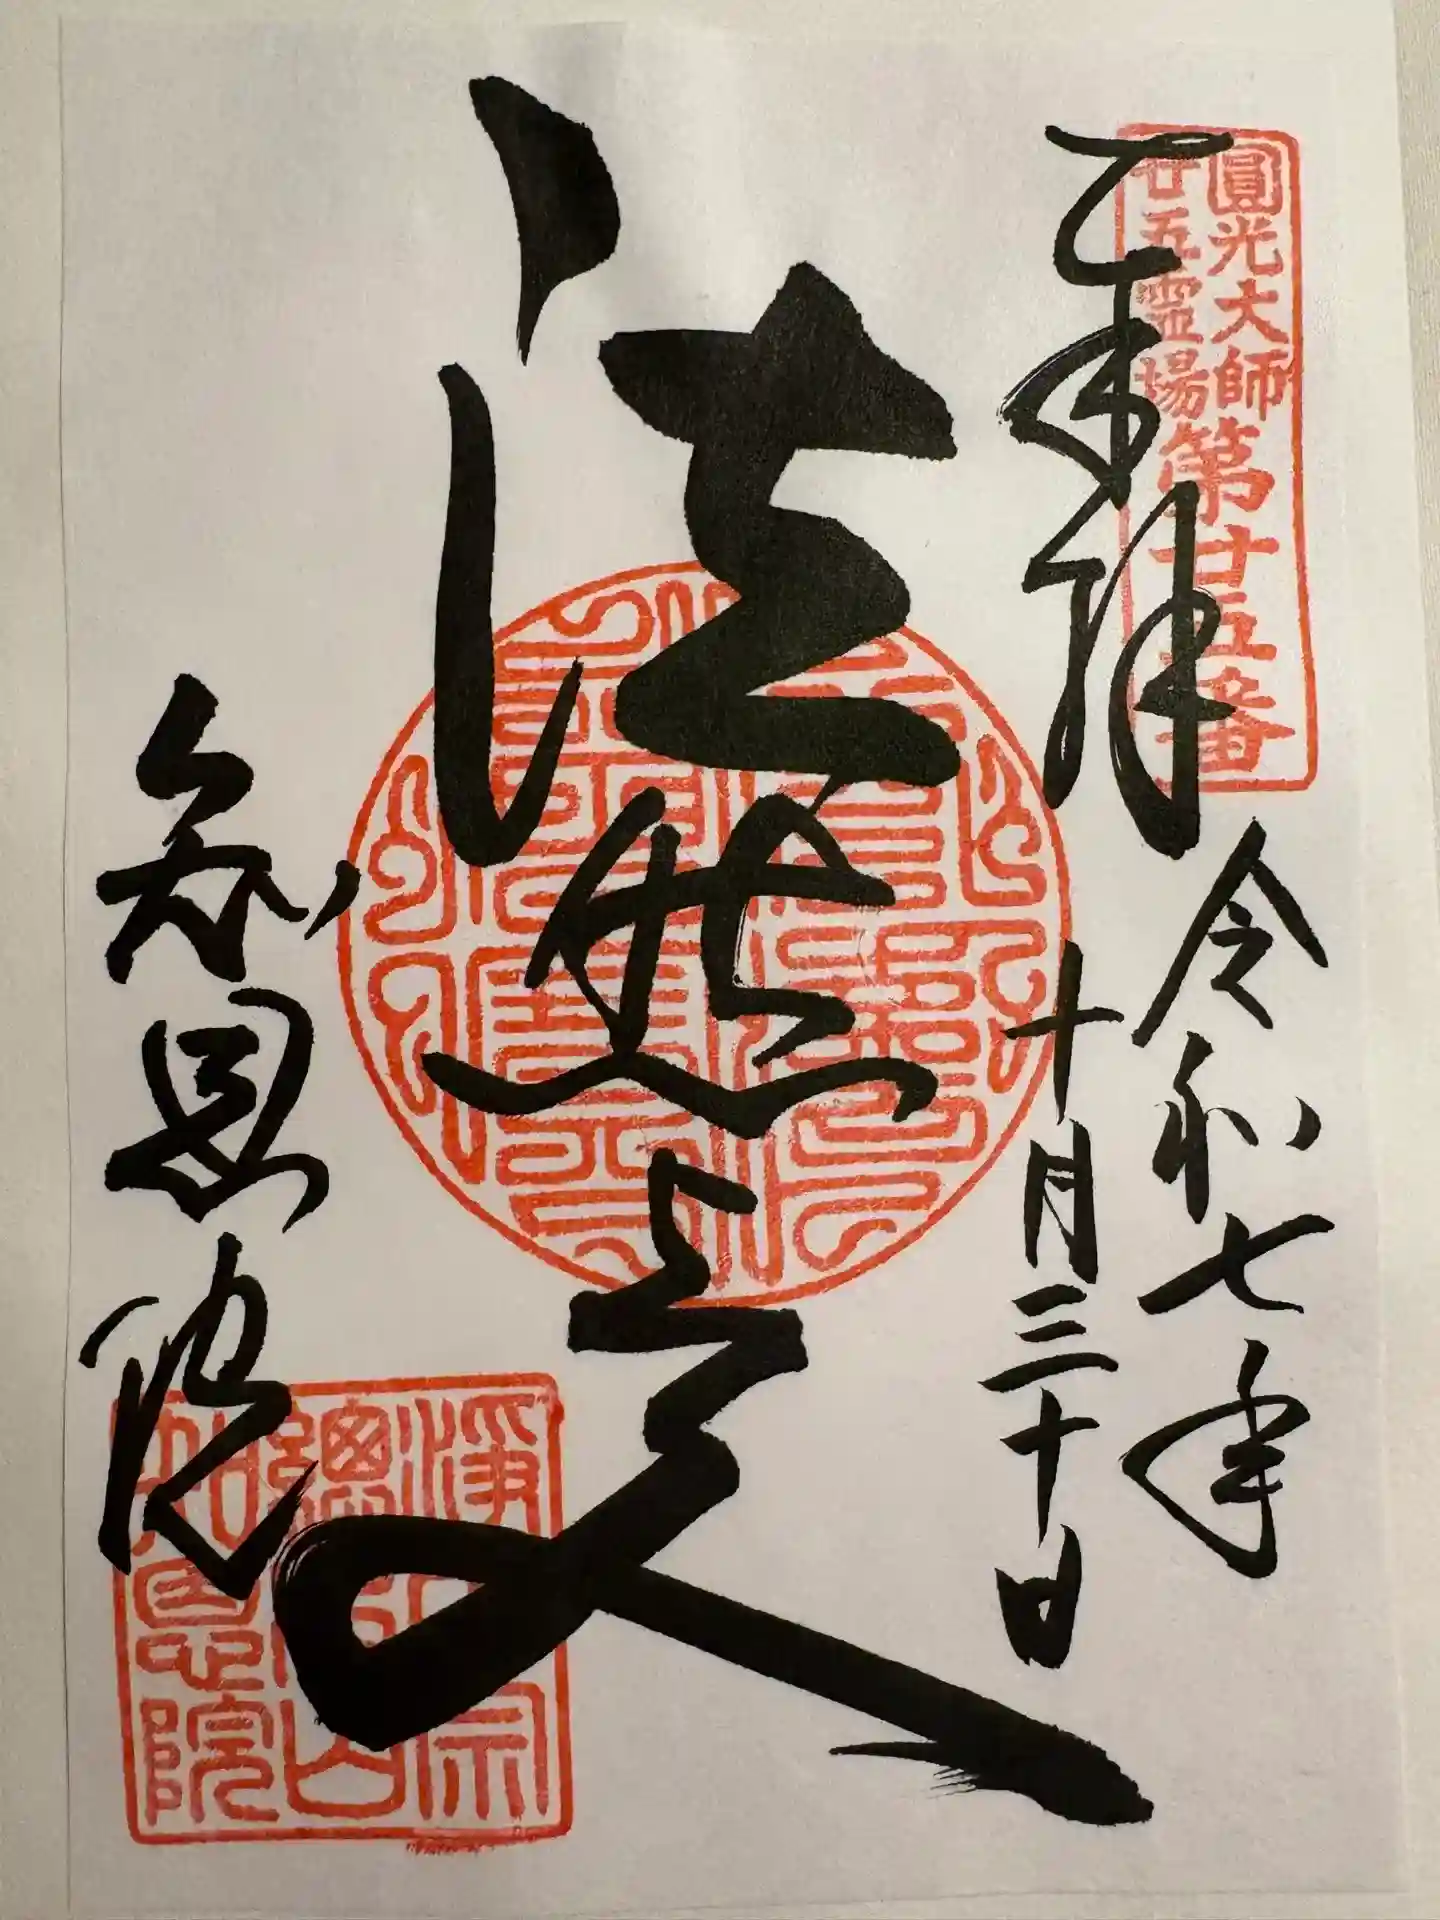 圓光大師
廿五霊場
第廿五番
奉拝
令和七年
十月三十日
法然上人
知恩院
淨土宗
總本山
知恩院